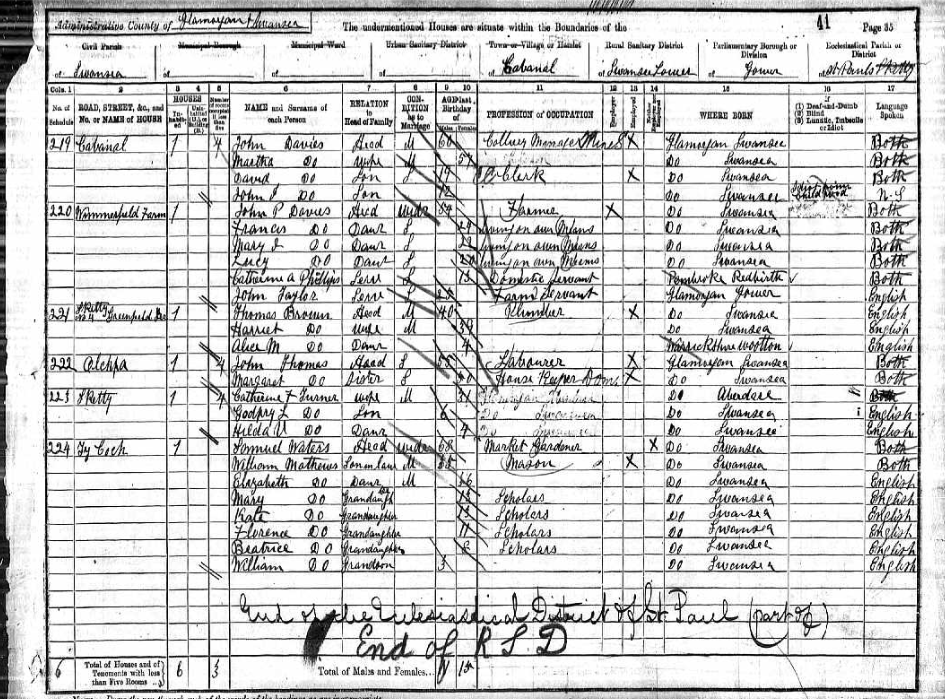 Administrative County of Glamorgan Swansea The undermentioned Houses are situate within the Boundaries of the 41 Page 35
Civil Parish Municipal Borough Municipal Ward Urban Sanitary District Town or Village or Hamlet Rural Sanitary District Parliamentary Borough or Division Ecclesiastical Parish or District
of Swansea of of of of Cabanal of Swansea Lower of Gower of St Pauls Sketty
Cols. 1 2 3 4 5 6 7 8 9 10 11 12 13 14 15 16 17
No. of Schedule ROAD, STREET, &c., and No. or NAME of HOUSE HOUSES NAME and Surname of each Person RELATION to Head of Family CONDITION as to Marriage AGE last Birthday of PROFESSION or OCCUPATION Employer Employed WHERE BORN (1) Deaf-and-Dumb (2) Blind (3) Lunatic, Imbecile or Idiot Language Spoken
219 Cabanal 1 4 John Davies Head M 60 Colliery Manager Mines X Glamorgan Swansea Both
Martha Do Wife M 57 Do Swansea Both
David Do Son S 19 Clerk X Do Swansea Both
John Do Son 12 Do Swansea Childhood N.S
220 Wimmerfield Farm 1 John P Davies Head Widr 59 Farmer X Do Swansea Both
Francis Do Daur S 24 Living on own Means Do Swansea Both
Mary J Do Daur S 22 Living on own Means Do Swansea Both
Lucy Do Daur S 20 Living on own Means Do Swansea Both
Catherine A Phillips Serv S 15 Domestic Servant Pembroke Redbirth Both
John Taylor Serv Farm Servant Glamorgan Gower English
221 Sketty Greenfield 1 Thomas Brown Head M 40 Plumber X Do Swansea English
Harriet Do Wife M 39 Do Swansea English
Alice M Do Daur 4 Warwickshire Wootton English
222 Oleppa 1 4 John Thomas Head S Labourer X Glamorgan Swansea Both
Margaret Do Sister S House Keeper Doms X Do Swansea Both
223 Sketty 1 4 Catherine F Turner Wife M 31 Do Aberdare Both
Godfry L Do Son 6 Do Swansea English
Hilda V Do Daur 4 Do Swansea English
224 Ty Coch 1 Samuel Waters Head Widr 68 Market Gardener X Do Swansea Both
William Mathews Son in law M 38 Mason X Do Swansea Both
Elizabeth Do Daur M 36 Do Swansea English
Mary Do Grandaughter 13 Scholars Do Swansea English
Kate Do Grandaughter 12 Scholars Do Swansea English
Florence Do Grandaughter 11 Scholars Do Swansea English
Beatrice Do Grandaughter 6 Scholars Do Swansea English
William Do Grandson 3 Do Swansea English
End of the Ecclesiastical District of St Paul (part of)
End of R S D
6 Total of Houses and of Tenements with less than Five Rooms 6 3 Total of Males and Females